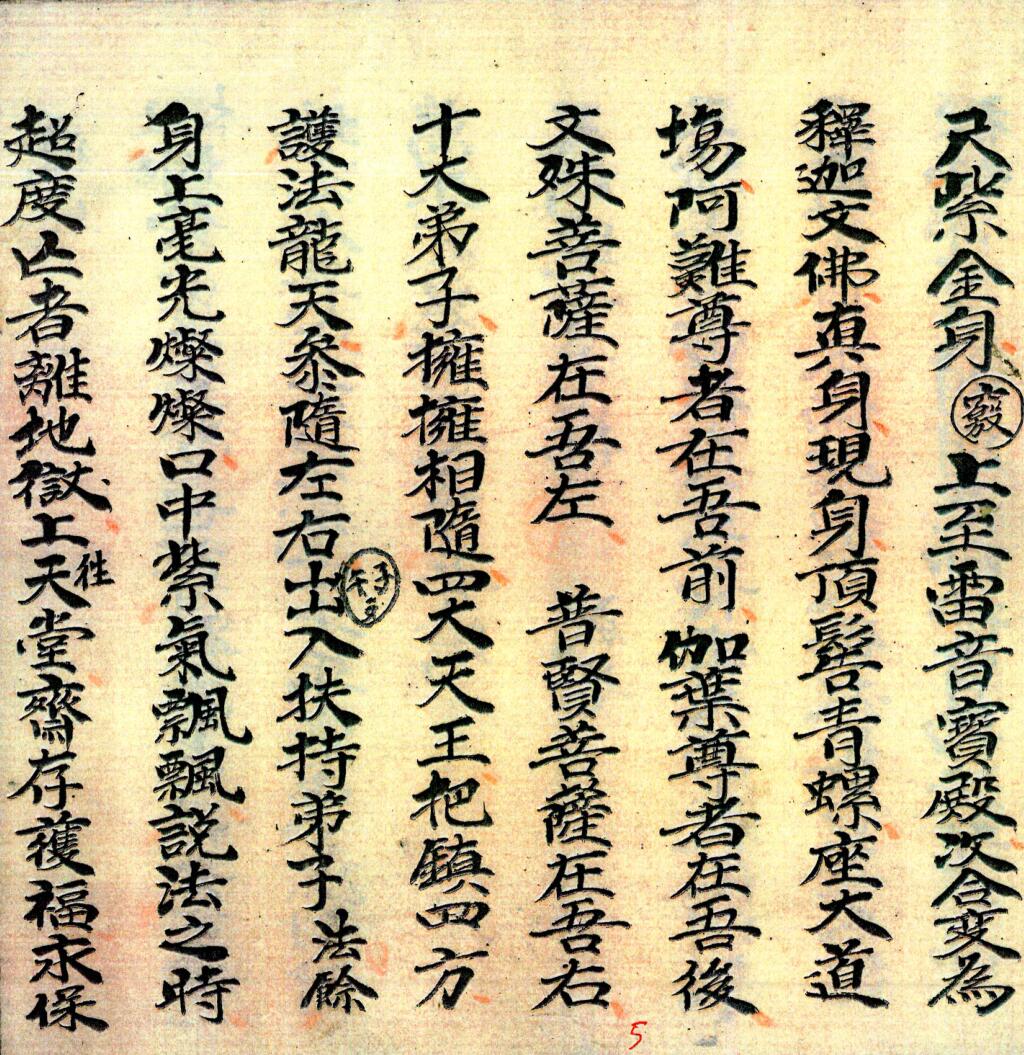 尺紫金身㉆上至雷音寶殿次合变為
釋迦文佛真身現身頂髻青螺座大道
塲阿難尊者在吾前伽葉尊者在吾後
文殊菩薩在吾左 普賢菩薩在吾右
十大弟子擁擁相隨四大天王把鎮四方
護法龍天叅隨左右出入扶持弟子法餘
身上毫光燦燦口中紫氣飄飄説法之時
超度亾者離地獄上天堂齋存獲福永保
徃
5